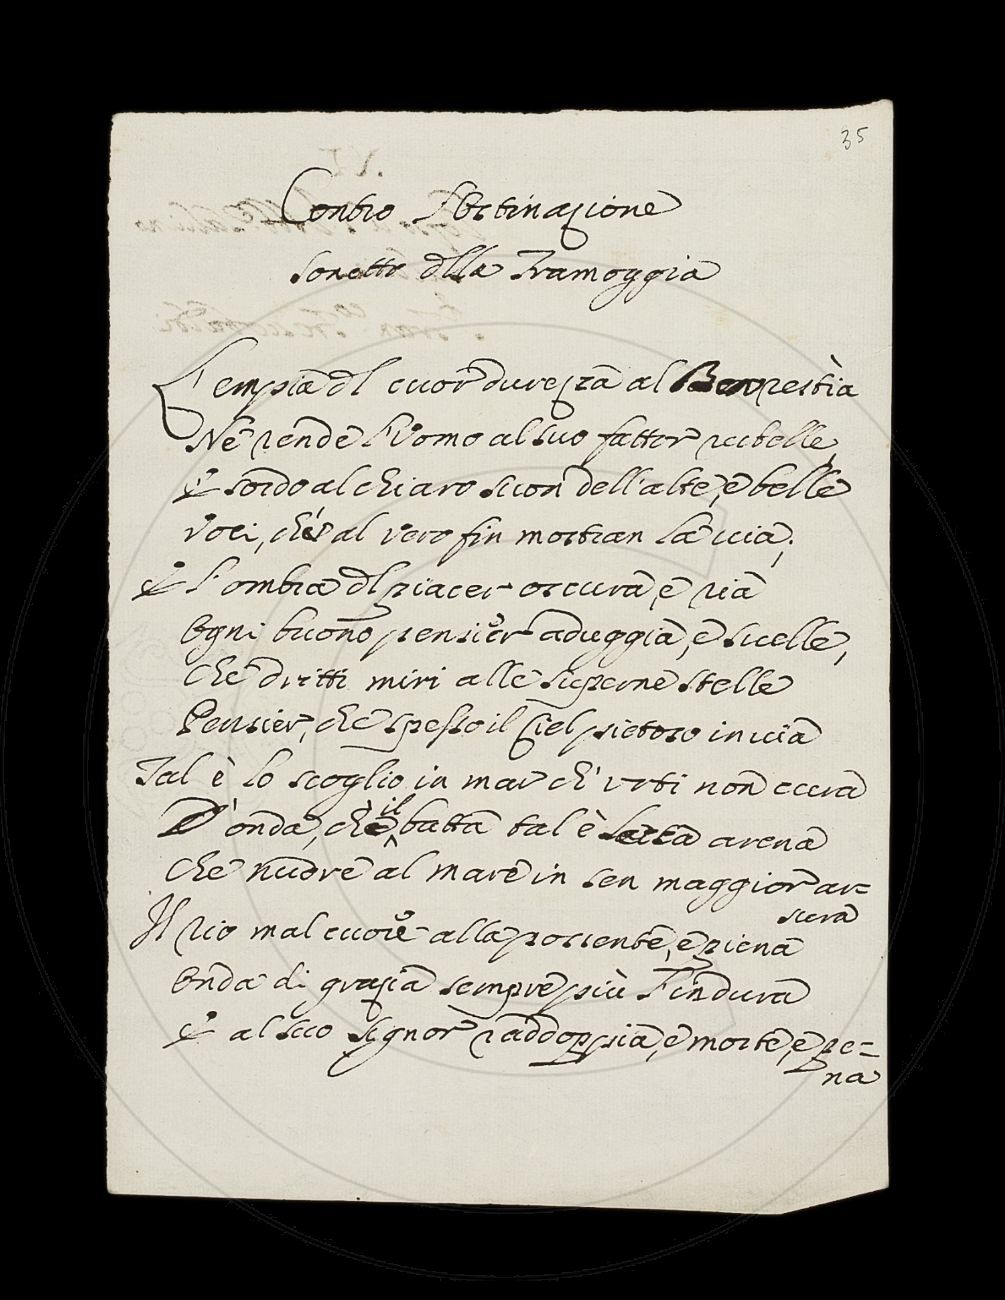 35
Contro l'Ostinazione
Sonetto della Tramoggia
L'empia del cuor durezza al Ben restìa
Ne rende l'Uomo al suo fattor ribelle,
E sordo al chiaro suon dell'alte, e belle
Voci, ch'al vero fin mostran la via;
E l'ombra del piacer oscura, e ria
Ogni buono pensier aduggia, e svelle,
Che dritti miri alle superne stelle
Pensier, che spesso il Ciel pietoso invia
Tal è lo scoglio in mar ch'urti non cura
D'onda, che il batta tal è secca arena
Che nudre al mare in sen maggior ar=
sura
Il rio mal cuore alla possente, e piena
Onda di grazia sempre più s'indura
E al suo Signor raddoppia, e morte, e pe=
na